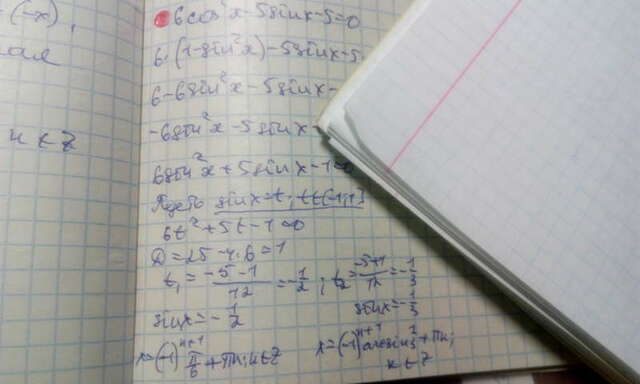 (-x),
6cos²x-5sinx-5=0
6·(1-sin²x)-5sinx-5
6-6sin²x-5sinx-
-6sin²x-5sinx
n∈Z
6sin²x+5sinx-1=0
Пусть sinx=t, t∈[-1;1]
6t²+5t-1=0
D=25-4·6=1
t₁=(-5-1)/12=-1/2; t₂=(-5+1)/12=-1/3
sinx=-1/2 sinx=-1/3
x=(-1)ⁿ⁺¹ π/6+πn; n∈Z x=(-1)ⁿ⁺¹ arcsin 1/3+πn;
n∈Z